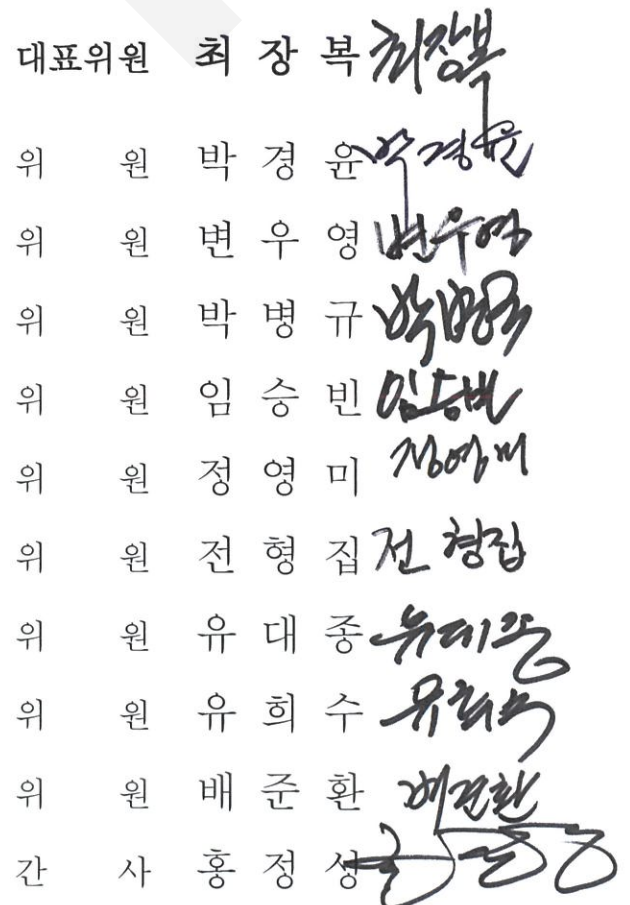 대표위원 최 장 복 최장복
위 원 박 경 윤 박경윤
위 원 변 우 영 변우영
위 원 박 병 규 박병규
위 원 임 승 빈 임승빈
위 원 정 영 미 정영미
위 원 전 형 집 전형집
위 원 유 대 종 유대종
위 원 유 희 수 유희수
위 원 배 준 환 배준환
간 사 홍 정 성